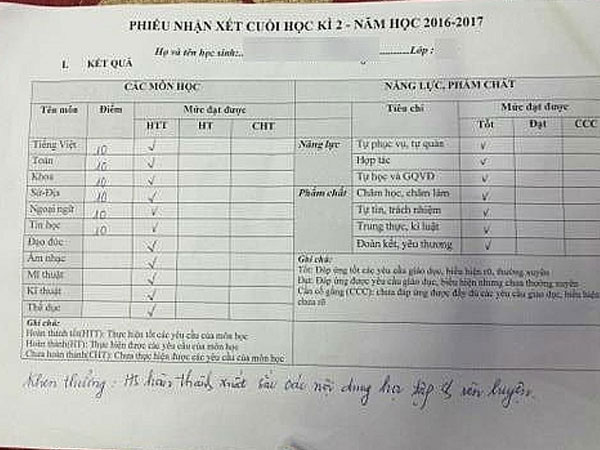 PHIẾU NHẬN XÉT CUỐI HỌC KÌ 2 - NĂM HỌC 2016-2017
Họ và tên học sinh:.. ..........Lớp :
I. KẾT QUẢ
CÁC MÔN HỌC
Tên môn Điểm Mức đạt được
HTT HT CHT
Tiếng Việt 10 ✓
Toán 10 ✓
Khoa 10 ✓
Sử-Địa 10 ✓
Ngoại ngữ 10 ✓
Tin học 10 ✓
Đạo đức ✓
Âm nhạc ✓
Mĩ thuật ✓
Kĩ thuật ✓
Thể dục ✓
Ghi chú:
Hoàn thành tốt(HTT): Thực hiện tốt các yêu cầu của môn học
Hoàn thành(HT): Thực hiện được các yêu cầu của môn học
Chưa hoàn thành(CHT): Chưa thực hiện được các yêu cầu của môn học
NĂNG LỰC, PHẨM CHẤT
Tiêu chí Mức đạt được
Tốt Đạt CCC
Năng lực Tự phục vụ, tự quản ✓
Hợp tác ✓
Tự học và GQVĐ ✓
Phẩm chất Chăm học, chăm làm ✓
Tự tin, trách nhiệm ✓
Trung thực, kỉ luật ✓
Đoàn kết, yêu thương ✓
Ghi chú:
Tốt: Đáp ứng tốt các yêu cầu giáo dục, biểu hiện rõ, thường xuyên
Đạt: Đáp ứng được yêu cầu giáo dục, biểu hiện nhưng chưa thường xuyên
Cần cố gắng (CCC): chưa đáp ứng được đầy đủ các yêu cầu giáo dục, biểu hiện
chưa rõ
Khen thưởng: HS hoàn thành xuất sắc các nội dung học tập & rèn luyện.